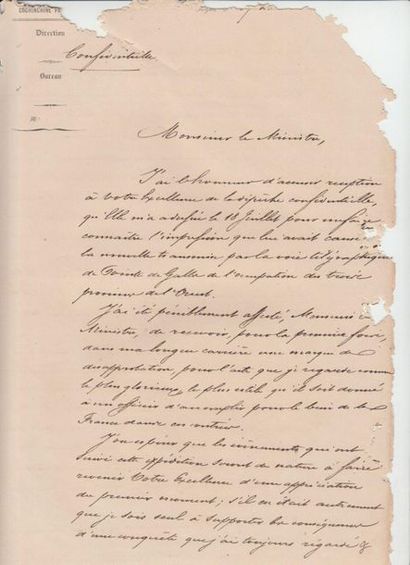 COCHINCHINE
Direction
Confidentielle
Bureau
Monsieur le Ministre,
J'ai l'honneur d'accuser réception
à Votre Excellence de la dépêche confidentielle,
qu'Elle m'a adressée le 18 Juillet pour me faire
connaître l'impression que lui avait causé
la nouvelle transmise par la voie télégraphique
de Pointe de Galle de l'occupation des trois
provinces de l'Ouest.
J'ai été péniblement affecté, Monsieur le
Ministre, de recevoir, pour la première fois,
dans ma longue carrière une marque de
désapprobation pour l'acte que je regarde comme
le plus glorieux, le plus utile qu'il soit donné
à un officier d'accomplir pour le bien de la
France dans ces contrées.
J'ose espérer que les évènements qui ont
suivi cette expédition seront de nature à faire
revenir Votre Excellence d'une appréciation
du premier moment; s'il en était autrement
que je sois seul à supporter les conséquences
d'une conquête que j'ai toujours regardé